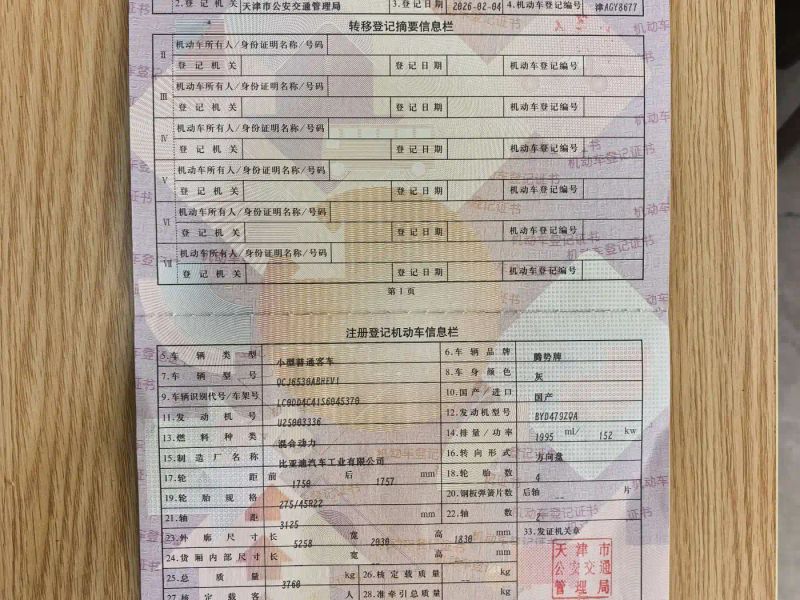 2.登记机关 天津市公安交通管理局 3.登记日期 2026-02-04 4.机动车登记编号 津AGY8677
转移登记摘要信息栏
Ⅱ 机动车所有人/身份证明名称/号码
登记机关 登记日期 机动车登记编号
Ⅲ 机动车所有人/身份证明名称/号码
登记机关 登记日期 机动车登记编号
Ⅳ 机动车所有人/身份证明名称/号码
登记机关 登记日期 机动车登记编号
Ⅴ 机动车所有人/身份证明名称/号码
登记机关 登记日期 机动车登记编号
Ⅵ 机动车所有人/身份证明名称/号码
登记机关 登记日期 机动车登记编号
Ⅶ 机动车所有人/身份证明名称/号码
登记机关 登记日期 机动车登记编号
第1页
注册登记机动车信息栏
5.车辆类型 小型普通客车 6.车辆品牌 腾势牌
7.车辆型号 QCJ6530ABHEV1 8.车身颜色 灰
9.车辆识别代号/车架号 LC0DD4C41S6045370 10.国产/进口 国产
11.发动机号 U25003336 12.发动机型号 BYD479ZQA
13.燃料种类 混合动力 14.排量/功率 1995 ml/ 152 kw
15.制造厂名称 比亚迪汽车工业有限公司 16.转向形式 方向盘
17.轮距 前 1750 后 1757 mm 18.轮胎数 4
19.轮胎规格 275/45R22 20.钢板弹簧片数 后轴 -- 片
21.轴距 3125 mm 22.轴数 2
23.外廓尺寸 长 5258 宽 2030 高 1830 mm 33.发证机关章
24.货厢内部尺寸 长 宽 高 mm
天津市
公安交通
管理局
25.总质量 3760 kg 26.核定载质量 -- kg
27.核定载客 人 28.准牵引总质量 kg